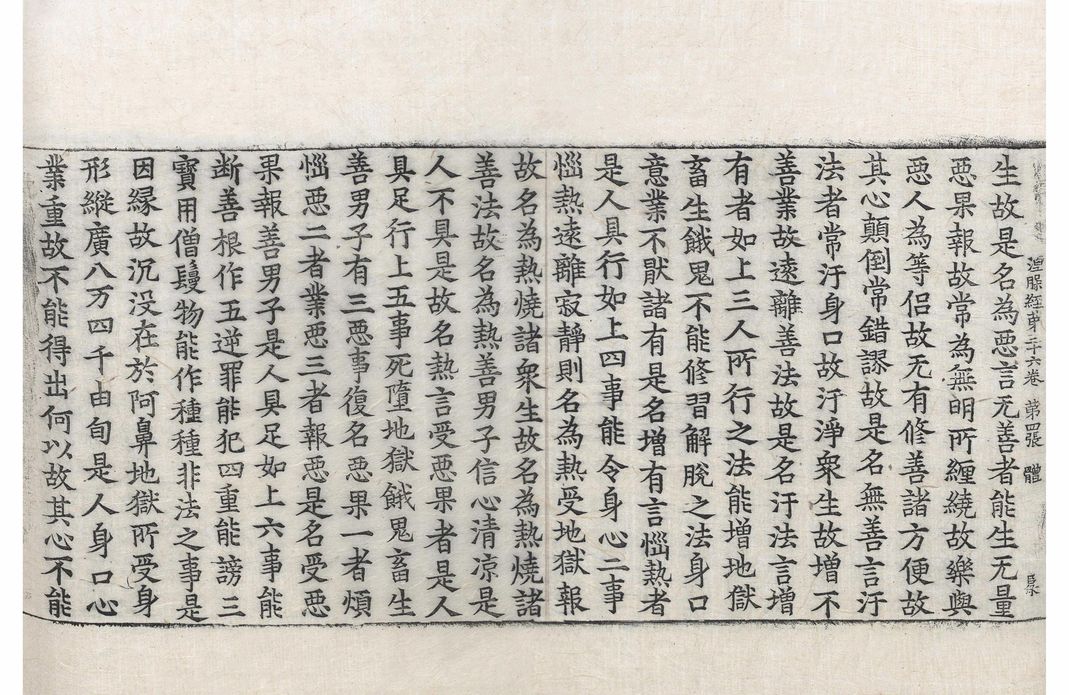 涅槃經苐三十六卷 苐四張 體
生故是名為惡言无善者能生无量
惡果報故常為無明所纏繞故樂與
惡人為等侣故无有修善諸方便故
其心顛倒常錯謬故是名無善言汙
法者常汙身口故汙淨衆生故增不
善業故遠離善法故是名汙法言增
有者如上三人所行之法能增地獄
畜生餓鬼不能修習解脫之法身口
意業不猒諸有是名增有言惱熱者
是人具行如上四事能令身心二事
惱熱遠離寂靜則名為熱受地獄報
故名為熱燒諸衆生故名為熱燒諸
善法故名為熱善男子信心清凉是
人不具是故名熱言受惡果者是人
具足行上五事死墮地獄餓鬼畜生
善男子有三惡事復名惡果一者煩
惱惡二者業惡三者報惡是名受惡
果報善男子是人具足如上六事能
断善根作五逆罪能犯四重能謗三
寳用僧鬘物能作種種非法之事是
因縁故沉没在於阿鼻地獄所受身
形縱廣八万四千由旬是人身口心
業重故不能得出何以故其心不能